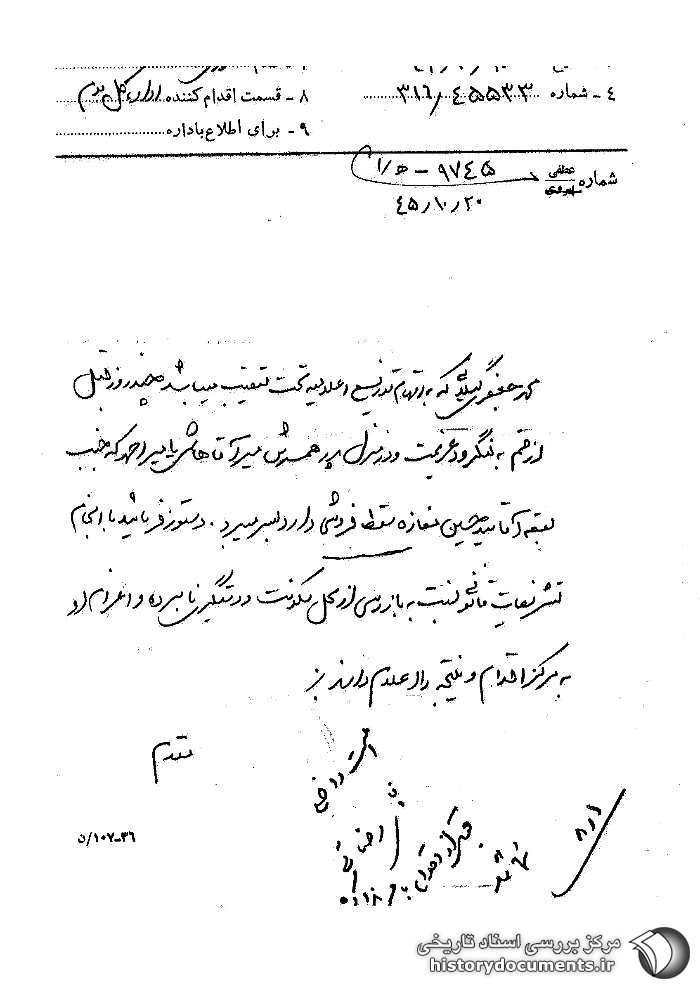 ۴ - شماره ۳۱۶/۴۵۵۳۳
۸ - قسمت اقدام کننده اداره کل سوم
۹ - برای اطلاع باداره
شماره عطفی پیروی ۹۷۴۵ - ۱/ه
۴۵/۱۰/۲۰
محمد جعفری گیلانی که به اتهام توزیع اعلامیه تحت تعقیب میباشد چند روز قبل
از قم به لنگرود عزیمت و در منزل پدر همسرش میر آقا هاشمی یا میر احمد که جنب
بقعه آقا سید حسین مغازه سقط فروشی دارد بسر میبرد. دستور فرمائید با انجام
تشریفات قانونی نسبت به بازرسی از محل سکونت و دستگیری نامبرده و اعزام او
به مرکز اقدام و نتیجه را اعلام دارند
مقدم
۳۶-۱۰۷/ن
مرکز بررسی اسناد تاریخی
historydocuments.ir